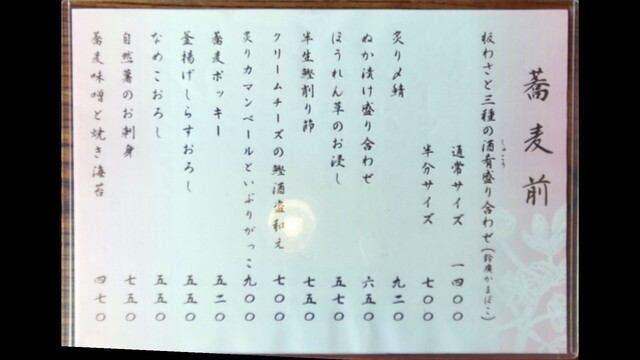 蕎麦前
板わさと三種の酒肴盛り合わせ(鈴廣かまぼこ)
しゅこう
通常サイズ 一四〇〇
半分サイズ 七〇〇
炙り〆鯖 九二〇
ぬか漬け盛り合わせ 六五〇
ほうれん草のお浸し 五七〇
半生鰹削り節 七五〇
クリームチーズの鰹酒盗和え 七〇〇
炙りカマンベールといぶりがっこ 九〇〇
蕎麦ポッキー 五二〇
釜揚げしらすおろし 五五〇
なめこおろし 五五〇
自然薯のお刺身 七五〇
蕎麦味噌と焼き海苔 四七〇